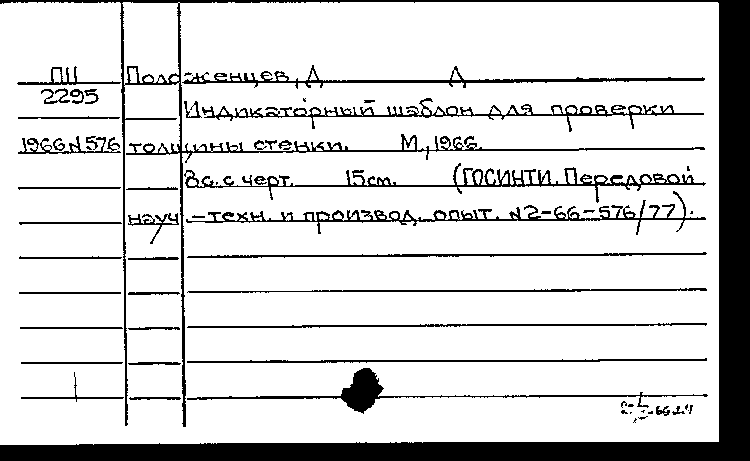 ПII Положенцев, Д Д
2295
Индикаторный шаблон для проверки
1966 N576 толщины стенки. М., 1966.
8с. с черт. 15см. (ГОСИНТИ. Передовой
науч.-техн. и производ. опыт. N2-66-576/77).